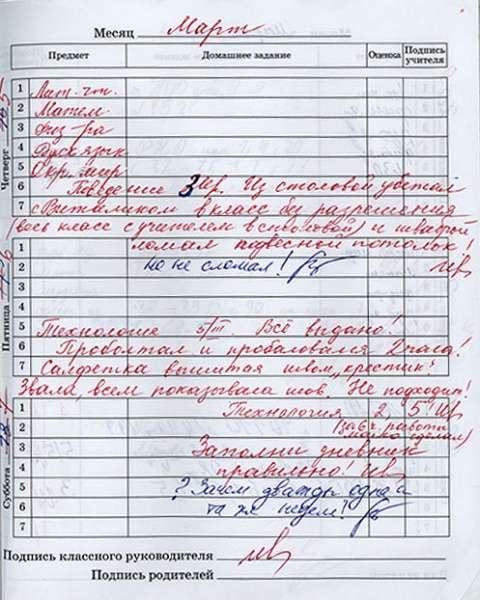 Месяц Март
Предмет Домашнее задание Оценка Подпись учителя
Четверг
1 Лит. чт.
2 Матем.
3 Физ-ра
4 Русск язык
5 Окр. мир
6 Поведение 3 Ив. Из столовой убежал
7 с Виталиком в класс без разрешения
(весь класс с учителем в столовой) и шваброй
ломал навесной потолок!
Пятница
1
2 но не сломал! Ив
3
4
5 Технология 5/III. Всё выдано!
6 Проболтал и пробаловался 2 часа!
7 Салфетка вышитая швом, крестик!
Звала, всем показывала шов. Не подходит!
Суббота
1 Технология 2, 5! Ив
2 (за 6 ч. работы
мало сделал)
3 Заполни дневник
4 правильно! Ив
5 ? Зачем дважды одна и
6 та же неделя?
7
Подпись классного руководителя Ив
Подпись родителей